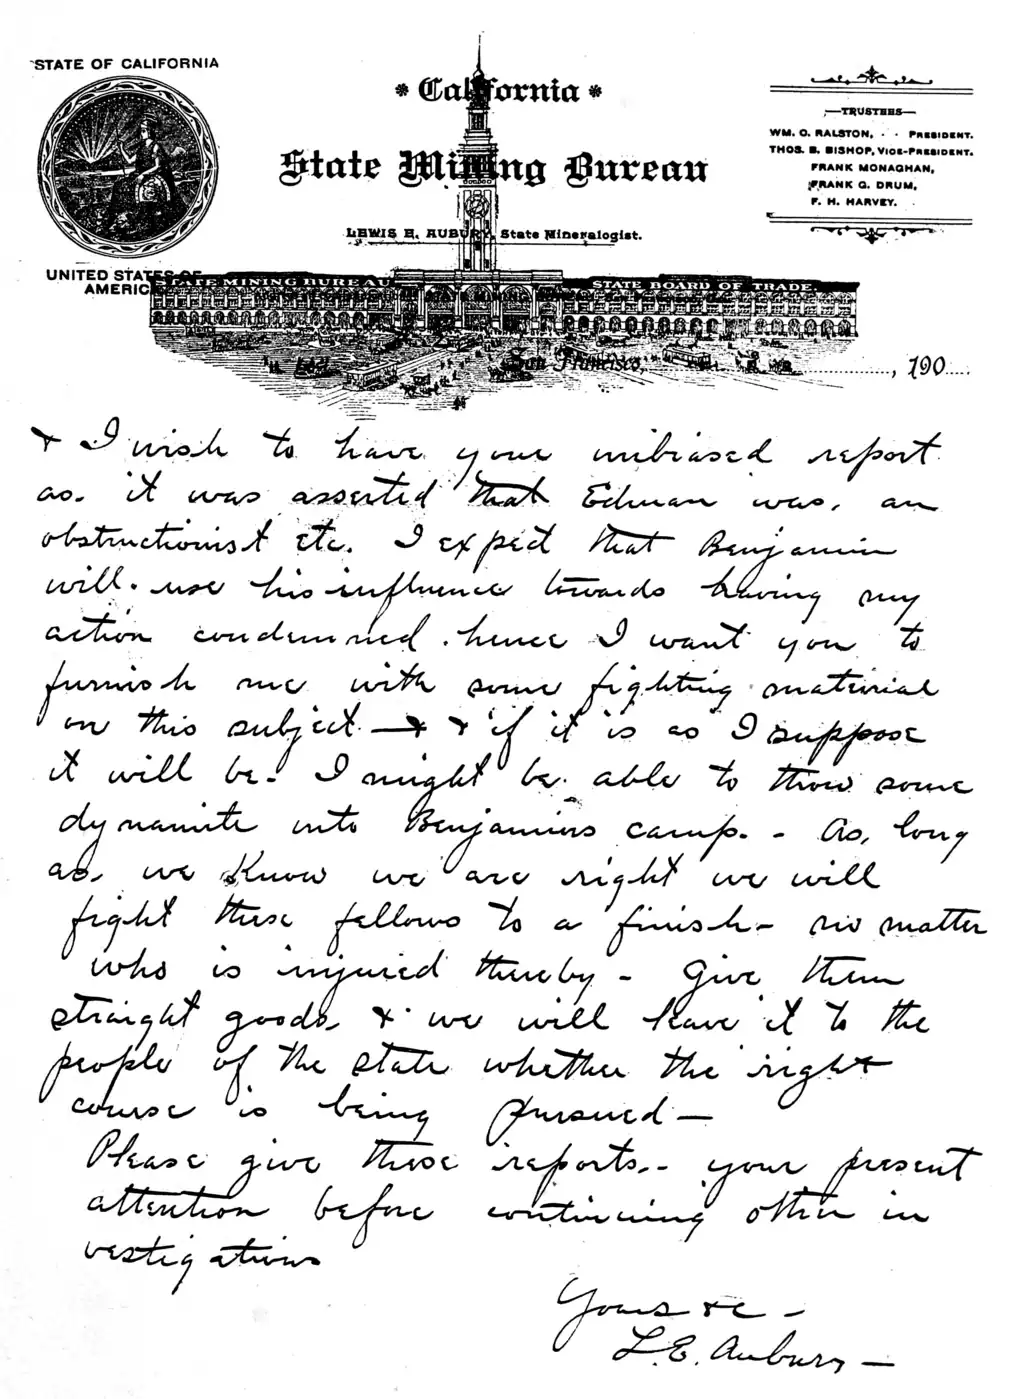 STATE OF CALIFORNIA
* California *
State Mining Bureau
LEWIS E. AUBURY, State Mineralogist.
—TRUSTEES—
WM. C. RALSTON, - - PRESIDENT.
THOS. B. BISHOP, VICE-PRESIDENT.
FRANK MONAGHAN,
FRANK G. DRUM,
F. H. HARVEY.
UNITED STATES OF
AMERICA
STATE MINING BUREAU
STATE MINING
STATE BOARD OF TRADE
San Francisco, , 190
& I wish to have your unbiased report
as. it was asserted that Edman was, an
obstructionist etc. I expect that Benjamin
will. use his influence towards having my
action condemned. hence I want you to
furnish me with some fighting material
on this subject — & & if it is as I suppose
it will be - I might be able to throw some
dynamite into Benjamins camp. - As, long
as, we Know we are right we will
fight these fellows to a finish - no matter
who is injured thereby - Give them
straight goods, & we will leave it to the
people of the state whether the right
course is being pursued —
Please give these reports, - your present
attention before continuing other in
vestigations
Yours &c -
L. E. Aubury —